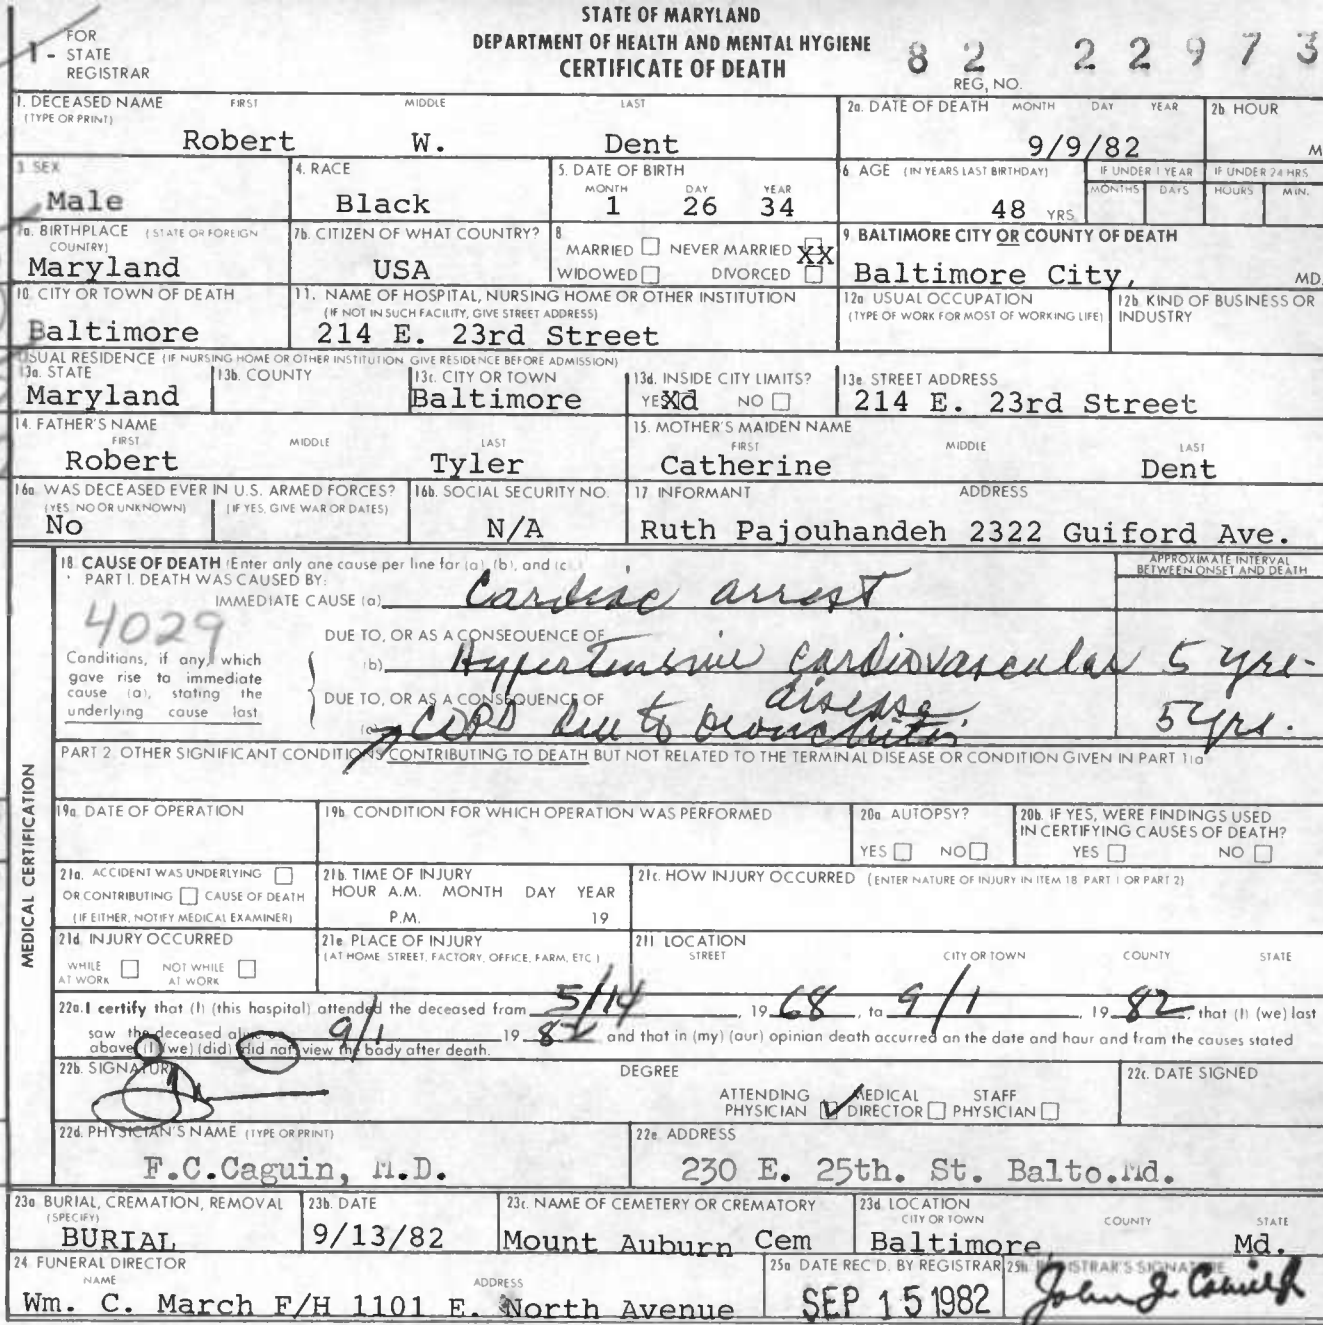 STATE OF MARYLAND
DEPARTMENT OF HEALTH AND MENTAL HYGIENE
CERTIFICATE OF DEATH
1 - FOR STATE REGISTRAR
82 22973
REG, NO.
1. DECEASED NAME (TYPE OR PRINT) FIRST MIDDLE LAST
Robert W. Dent
2a. DATE OF DEATH MONTH DAY YEAR
9/9/82
2b. HOUR
M
3 SEX
Male
4. RACE
Black
5. DATE OF BIRTH
MONTH DAY YEAR
1 26 34
6 AGE (IN YEARS LAST BIRTHDAY)
48 YRS
IF UNDER 1 YEAR
MONTHS DAYS
IF UNDER 24 HRS
HOURS MIN.
7a. BIRTHPLACE (STATE OR FOREIGN COUNTRY)
Maryland
7b. CITIZEN OF WHAT COUNTRY?
USA
8
MARRIED NEVER MARRIED XX
WIDOWED DIVORCED
9 BALTIMORE CITY OR COUNTY OF DEATH
Baltimore City, MD.
10 CITY OR TOWN OF DEATH
Baltimore
11. NAME OF HOSPITAL, NURSING HOME OR OTHER INSTITUTION
(IF NOT IN SUCH FACILITY, GIVE STREET ADDRESS)
214 E. 23rd Street
12a USUAL OCCUPATION
(TYPE OF WORK FOR MOST OF WORKING LIFE)
12b. KIND OF BUSINESS OR INDUSTRY
USUAL RESIDENCE (IF NURSING HOME OR OTHER INSTITUTION GIVE RESIDENCE BEFORE ADMISSION)
13a. STATE
Maryland
13b. COUNTY
13c. CITY OR TOWN
Baltimore
13d. INSIDE CITY LIMITS?
YES Xd NO
13e STREET ADDRESS
214 E. 23rd Street
14. FATHER'S NAME
FIRST MIDDLE LAST
Robert Tyler
15. MOTHER'S MAIDEN NAME
FIRST MIDDLE LAST
Catherine Dent
16a WAS DECEASED EVER IN U.S. ARMED FORCES?
(YES, NO OR UNKNOWN) (IF YES, GIVE WAR OR DATES)
No
16b. SOCIAL SECURITY NO.
N/A
17 INFORMANT ADDRESS
Ruth Pajouhandeh 2322 Guiford Ave.
MEDICAL CERTIFICATION
18 CAUSE OF DEATH (Enter only one cause per line for (a), (b), and (c).)
PART I. DEATH WAS CAUSED BY:
APPROXIMATE INTERVAL BETWEEN ONSET AND DEATH
IMMEDIATE CAUSE (a) Cardiac arrest
4029
DUE TO, OR AS A CONSEQUENCE OF
Conditions, if any, which gave rise to immediate cause (a), stating the underlying cause last
(b) Hypertensive cardiovascular disease 5 yrs.
DUE TO, OR AS A CONSEQUENCE OF
(c) COPD due to bronchitis 5 yrs.
PART 2. OTHER SIGNIFICANT CONDITIONS CONTRIBUTING TO DEATH BUT NOT RELATED TO THE TERMINAL DISEASE OR CONDITION GIVEN IN PART 1(a)
19a DATE OF OPERATION
19b. CONDITION FOR WHICH OPERATION WAS PERFORMED
20a AUTOPSY?
YES NO
20b. IF YES, WERE FINDINGS USED IN CERTIFYING CAUSES OF DEATH?
YES NO
21a. ACCIDENT WAS UNDERLYING
OR CONTRIBUTING CAUSE OF DEATH
(IF EITHER, NOTIFY MEDICAL EXAMINER)
21b. TIME OF INJURY
HOUR A.M. MONTH DAY YEAR
P.M. 19
21c. HOW INJURY OCCURRED (ENTER NATURE OF INJURY IN ITEM 18 PART 1 OR PART 2)
21d INJURY OCCURRED
WHILE AT WORK NOT WHILE AT WORK
21e PLACE OF INJURY
(AT HOME, STREET, FACTORY, OFFICE, FARM, ETC.)
21f LOCATION
STREET CITY OR TOWN COUNTY STATE
22a. I certify that (I) (this hospital) attended the deceased from 5/14, 1968, to 9/1, 1982, that (I) (we) last
saw the deceased 9/1 1982 and that in (my) (our) opinion death occurred on the date and hour and from the causes stated
above (I) (we) (did) (did not) view the body after death.
22b. SIGNATURE
DEGREE
ATTENDING PHYSICIAN MEDICAL DIRECTOR STAFF PHYSICIAN
22c. DATE SIGNED
22d. PHYSICIAN'S NAME (TYPE OR PRINT)
F.C.Caguin, M.D.
22e. ADDRESS
230 E. 25th. St. Balto.Md.
23a BURIAL, CREMATION, REMOVAL (SPECIFY)
BURIAL
23b. DATE
9/13/82
23c. NAME OF CEMETERY OR CREMATORY
Mount Auburn Cem
23d LOCATION
CITY OR TOWN COUNTY STATE
Baltimore, Md.
24 FUNERAL DIRECTOR
NAME ADDRESS
Wm. C. March F/H 1101 E. North Avenue
25a DATE REC'D. BY REGISTRAR
SEP 15 1982
25b REGISTRAR'S SIGNATURE
John J.